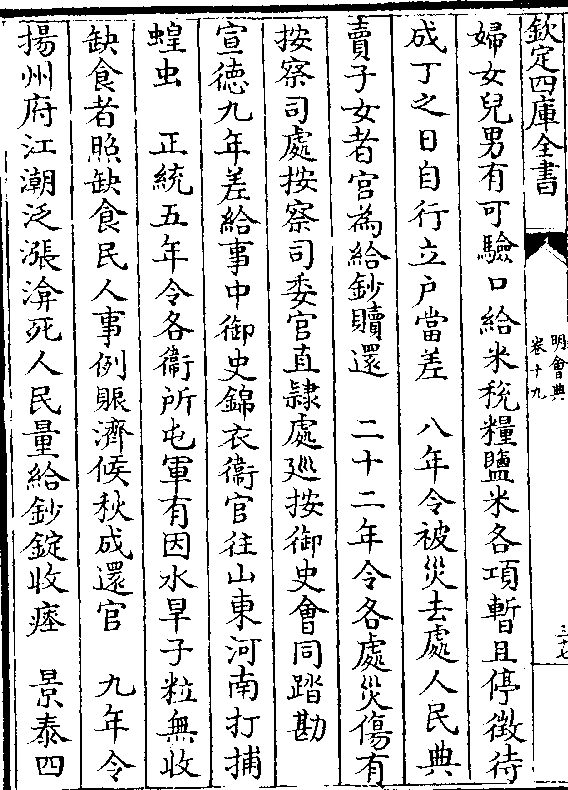 欽定四庫全書
明會典
卷十九
三十七
婦女兒男有可驗口給米稅糧鹽米各項暫且停徴待
成丁之日自行立戶當差　八年令被災去處人民典
賣子女者官為給鈔贖還　二十二年令各處災傷有
按察司處按察司委官直隸處廵按御史會同踏勘
宣德九年差給事中御史錦衣衞官往山東河南打捕
蝗虫　正統五年令各衞所屯軍有因水旱子粒無收
缺食者照缺食民人事例賑濟候秋成還官　九年令
揚州府江潮泛漲渰死人民量給鈔錠收瘞　景泰四